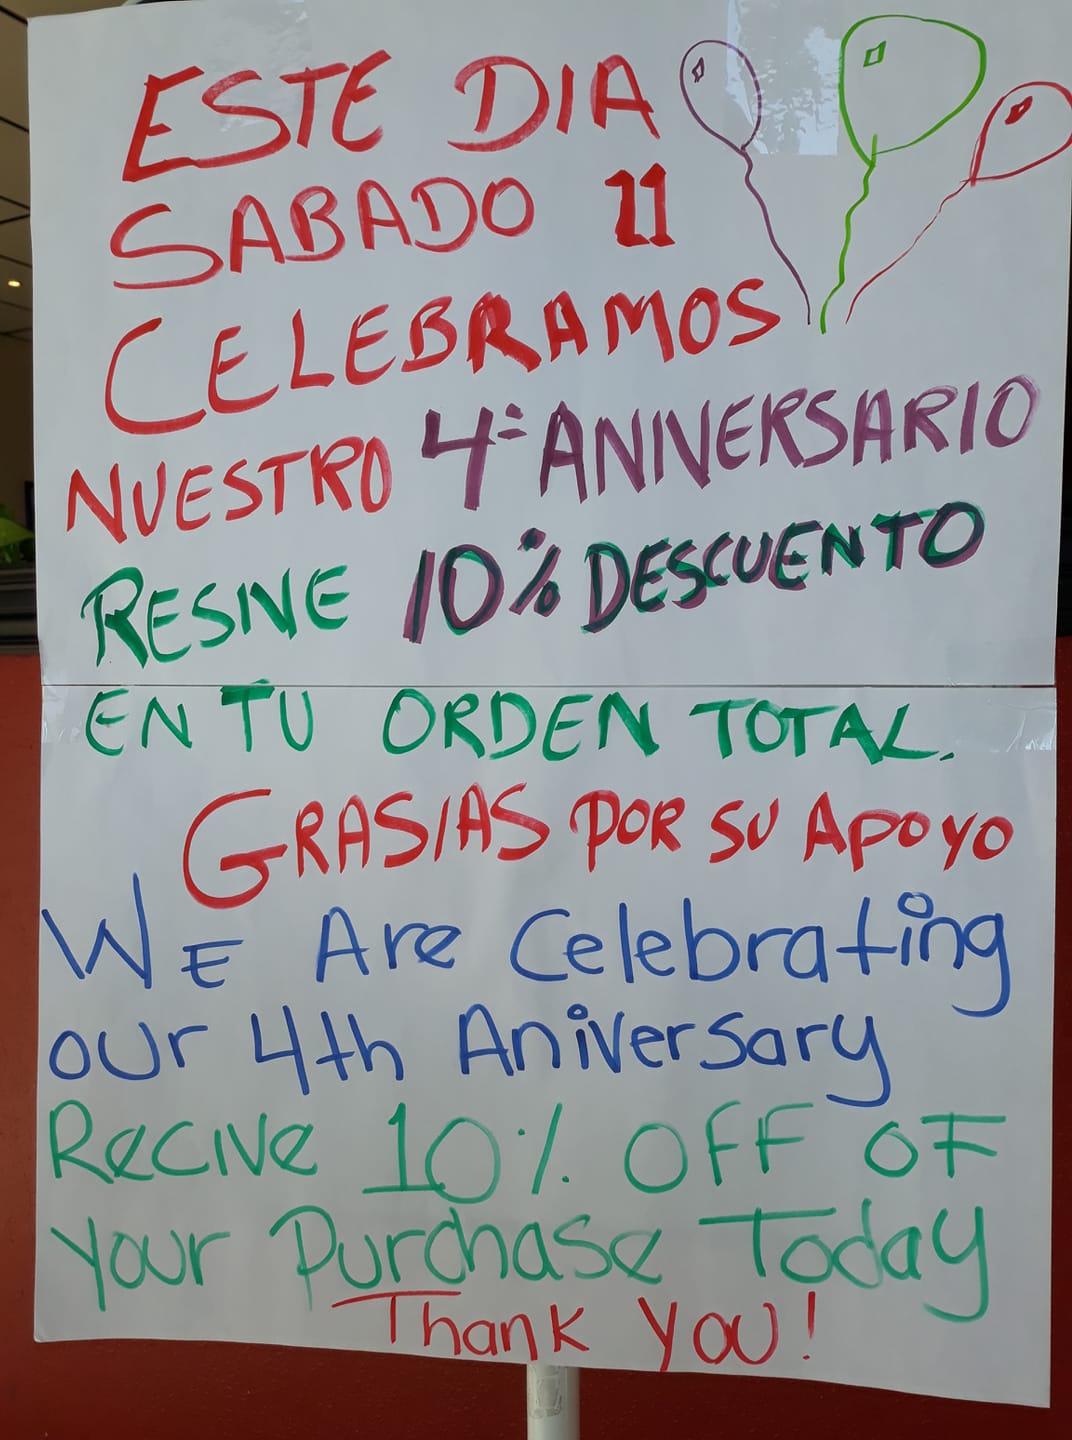 ESTE DIA
SABADO 11
CELEBRAMOS
NUESTRO 4º ANIVERSARIO
RESIVE 10% DESCUENTO
EN TU ORDEN TOTAL.
GRASIAS POR SU APOYO
WE Are Celebrating
our 4th Aniversary
Recive 10% OFF OF
Your Purchase Today
Thank You!